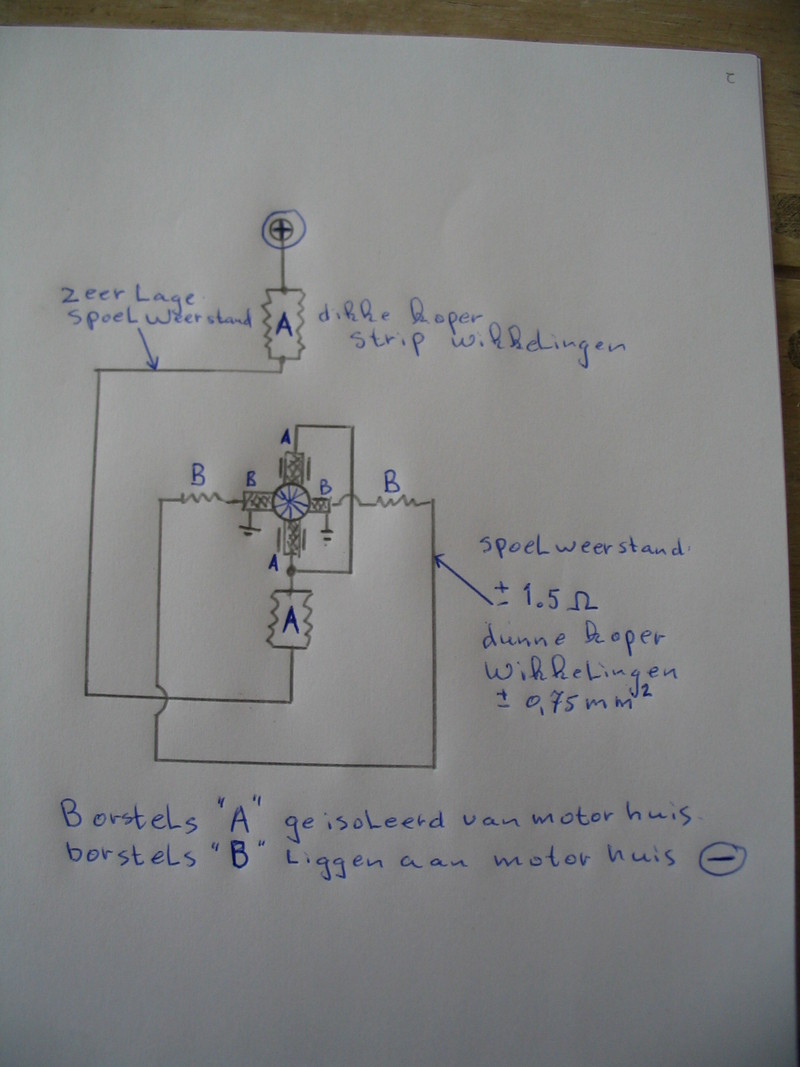 2
+
zeer Lage
spoel weerstand
A
dikke koper
strip wikkelingen
A
B
B
B
B
A
A
spoel weerstand
± 1.5 Ω
dunne koper
wikkelingen
± 0,75 mm²
Borstels "A" geisoleerd van motor huis.
borstels "B" Liggen aan motor huis −